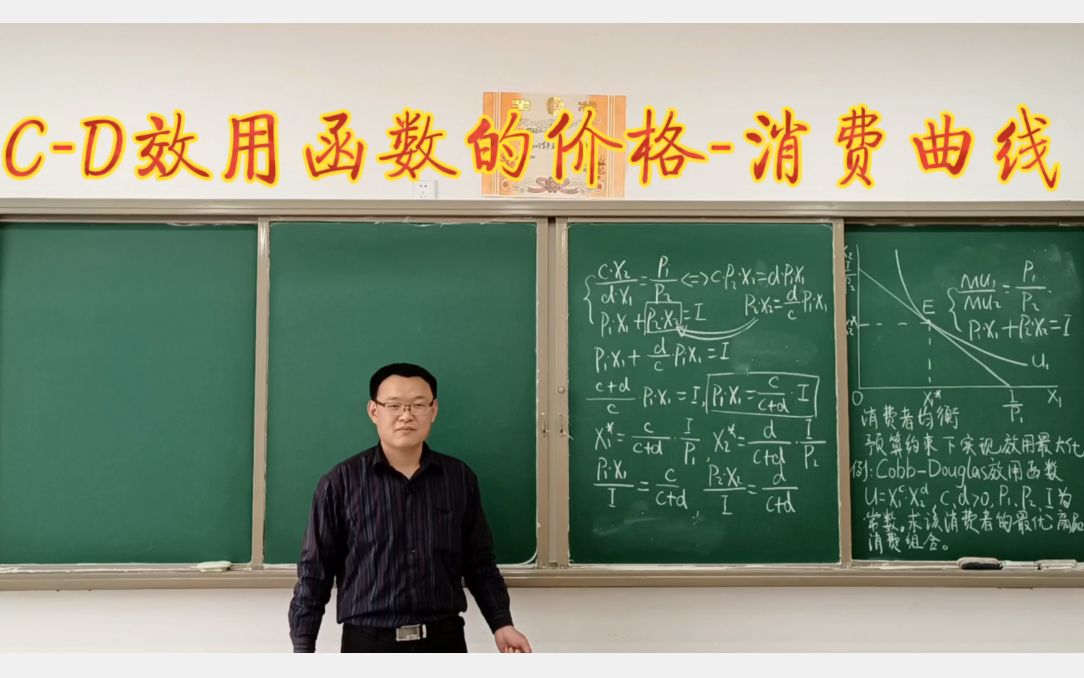 C-D效用函数的价格-消费曲线
C·X₂/d·X₁=P₁/P₂ <=> C·P₂·X₂=dP₁X₁
P₁·X₁+P₂·X₂=I
P₂·X₂=d/c P₁·X₁
P₁·X₁+d/c·P₁X₁=I
c+d/c·P₁·X₁=I, P₁·X₁=c/c+d·I
X₁*=c/c+d·I/P₁, X₂*=d/c+d·I/P₂
P₁·X₁/I=c/c+d, P₂·X₂/I=d/c+d
X₂
I/P₂
X₂*
E
U₁
0
X₁*
I/P₁
X₁
MU₁/MU₂=P₁/P₂.
P₁·X₁+P₂·X₂=I
消费者均衡
预算约束下实现效用最大化
例:Cobb-Douglas效用函数
U=X₁ᶜX₂ᵈ, c,d>0, P₁、P₂、I为
常数。求该消费者的最优商品
消费组合。